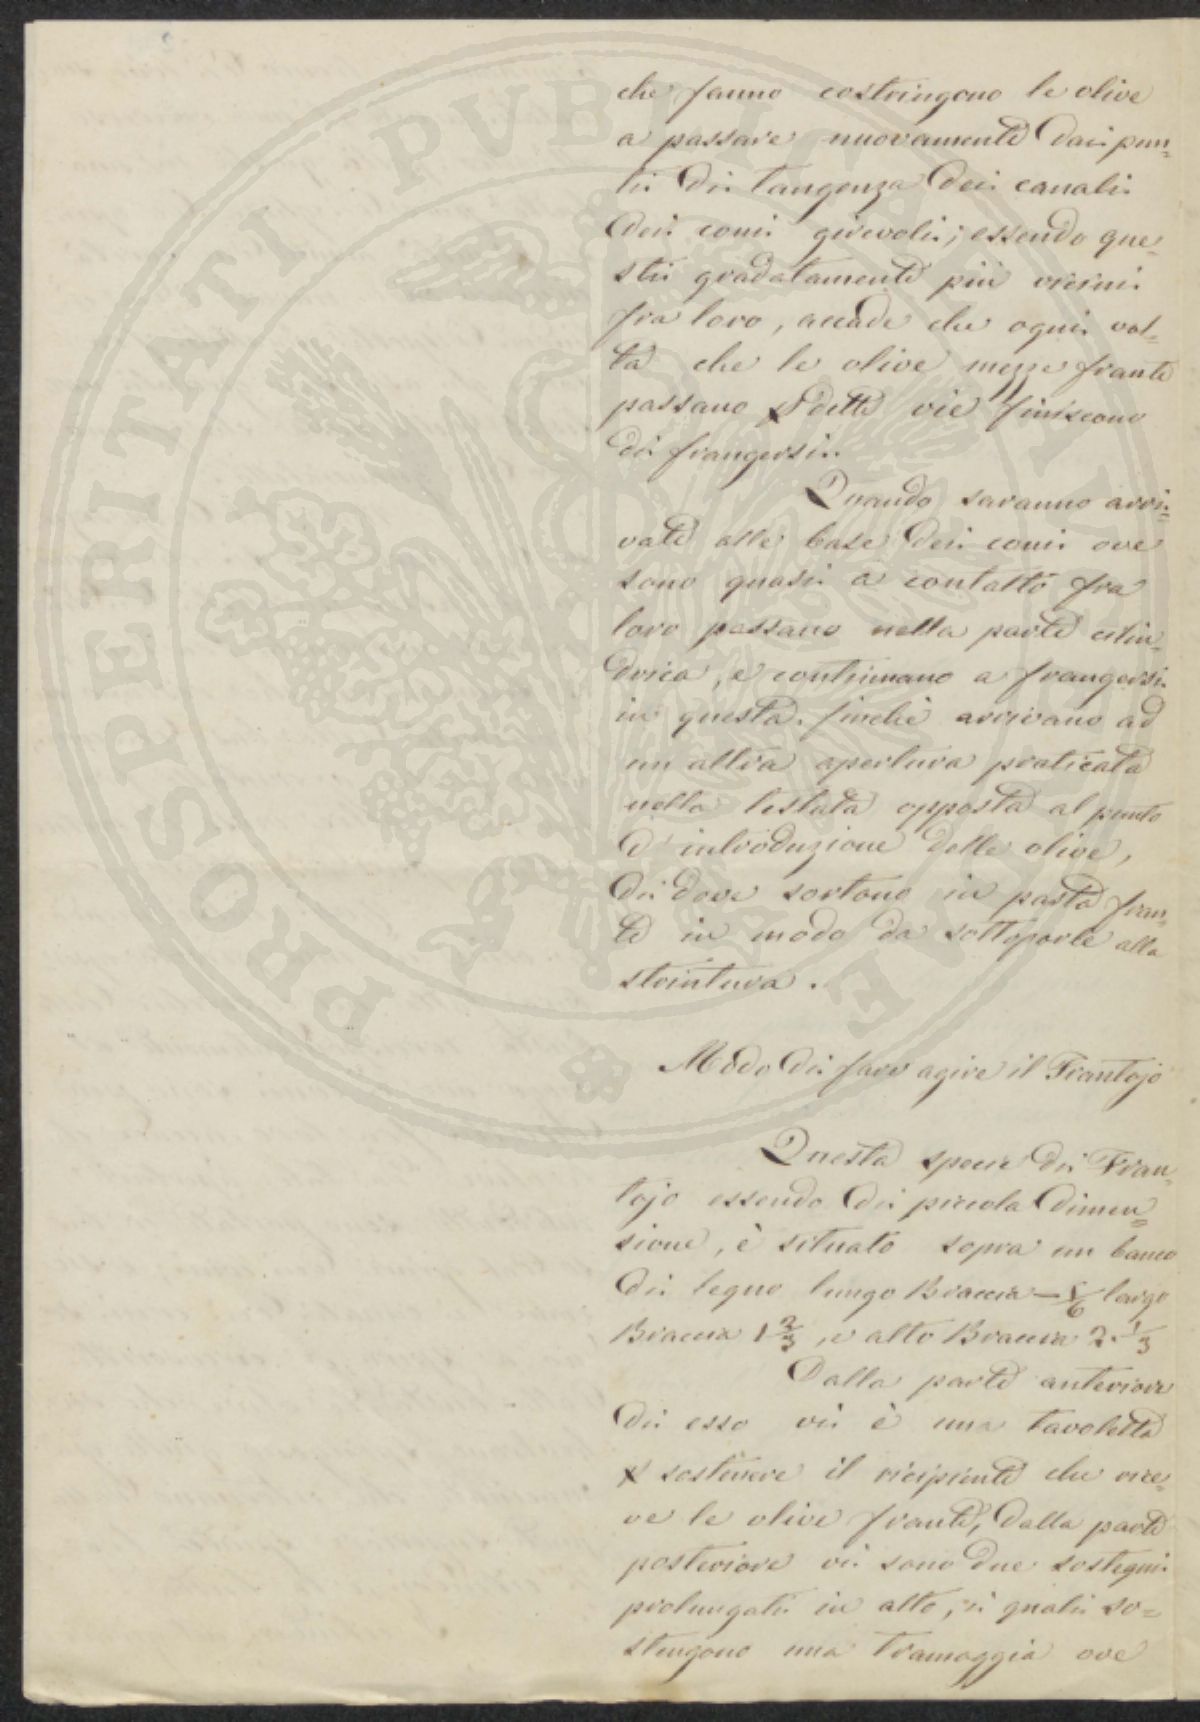 che fanno costringono le olive
a passare nuovamente dai pun=
ti di tangenza dei canali
dei coni girevoli; essendo que=
sti gradatamente più vicini
fra loro, accade che ogni vol=
ta che le olive mezze frante
passano p dette vie finiscono
di frangersi.
Quando saranno arri=
vate alle base dei coni ove
sono quasi a contatto fra
loro passano nella parte cilin=
drica, e continuano a frangersi
in questa finchè arrivano ad
un altra apertura praticata
nella testata opposta al punto
d'introduzione delle olive,
di dove sortono in pasta fran=
te in modo da sottoporle alla
strintura.
Modo di fare agire il Frantojo
Questa specie di Fran=
tojo essendo di piccola dimen=
sione, è situato sopra un banco
di legno lungo Braccia – 5/6 largo
Braccia 1 2/3, e alto Braccia 2. 1/3
Dalla parte anteriore
di esso vi è una tavoletta
p sostenere il recipiente che rice=
ve le olive frante, dalla parte
posteriore vi sono due sostegni
prolungati in alto, i quali so=
stengono una tramoggia ove
PROSPERITATI PVBLICAE AVGENDAE